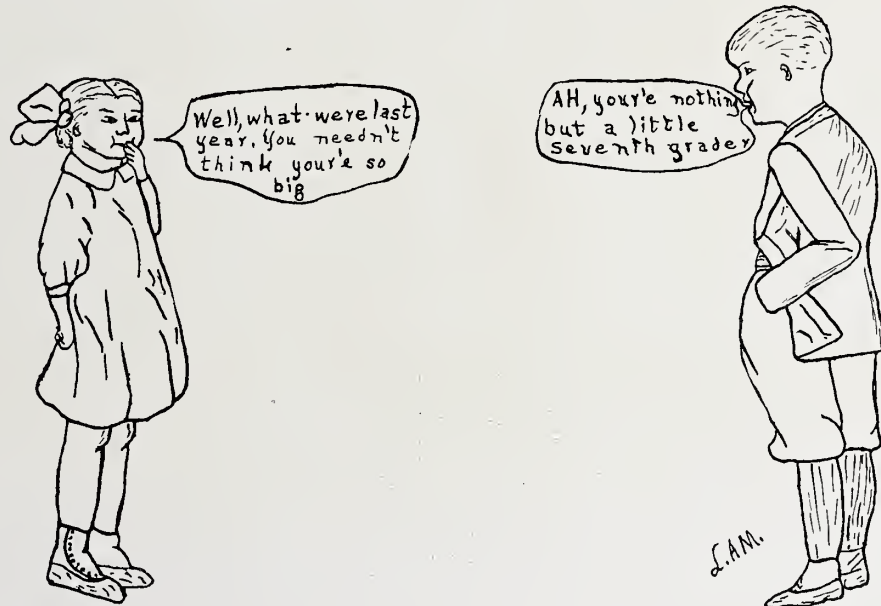 Well, what were last
year. You needn't
think your'e so
big
AH, your'e nothing
but a little
seventh grader
L.A.M.